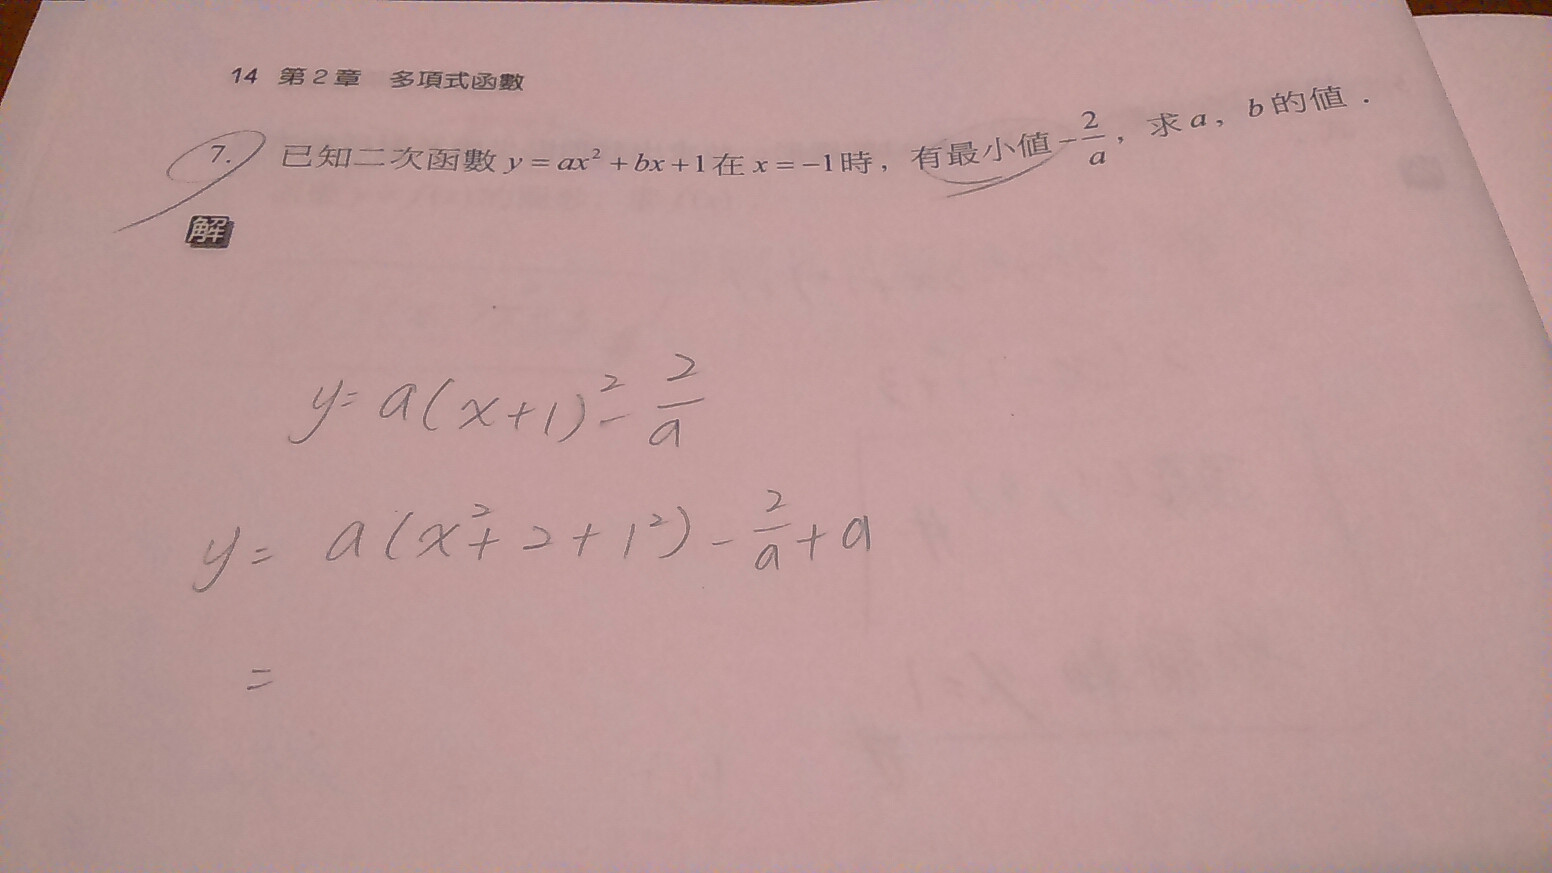 14 第2章 多項式函數
7. 已知二次函數 y = ax² + bx + 1 在 x = −1 時，有最小值 −2/a，求 a，b 的值．
解
y = a(x+1)² − 2/a
y = a(x² + 2 + 1²) − 2/a + a
=